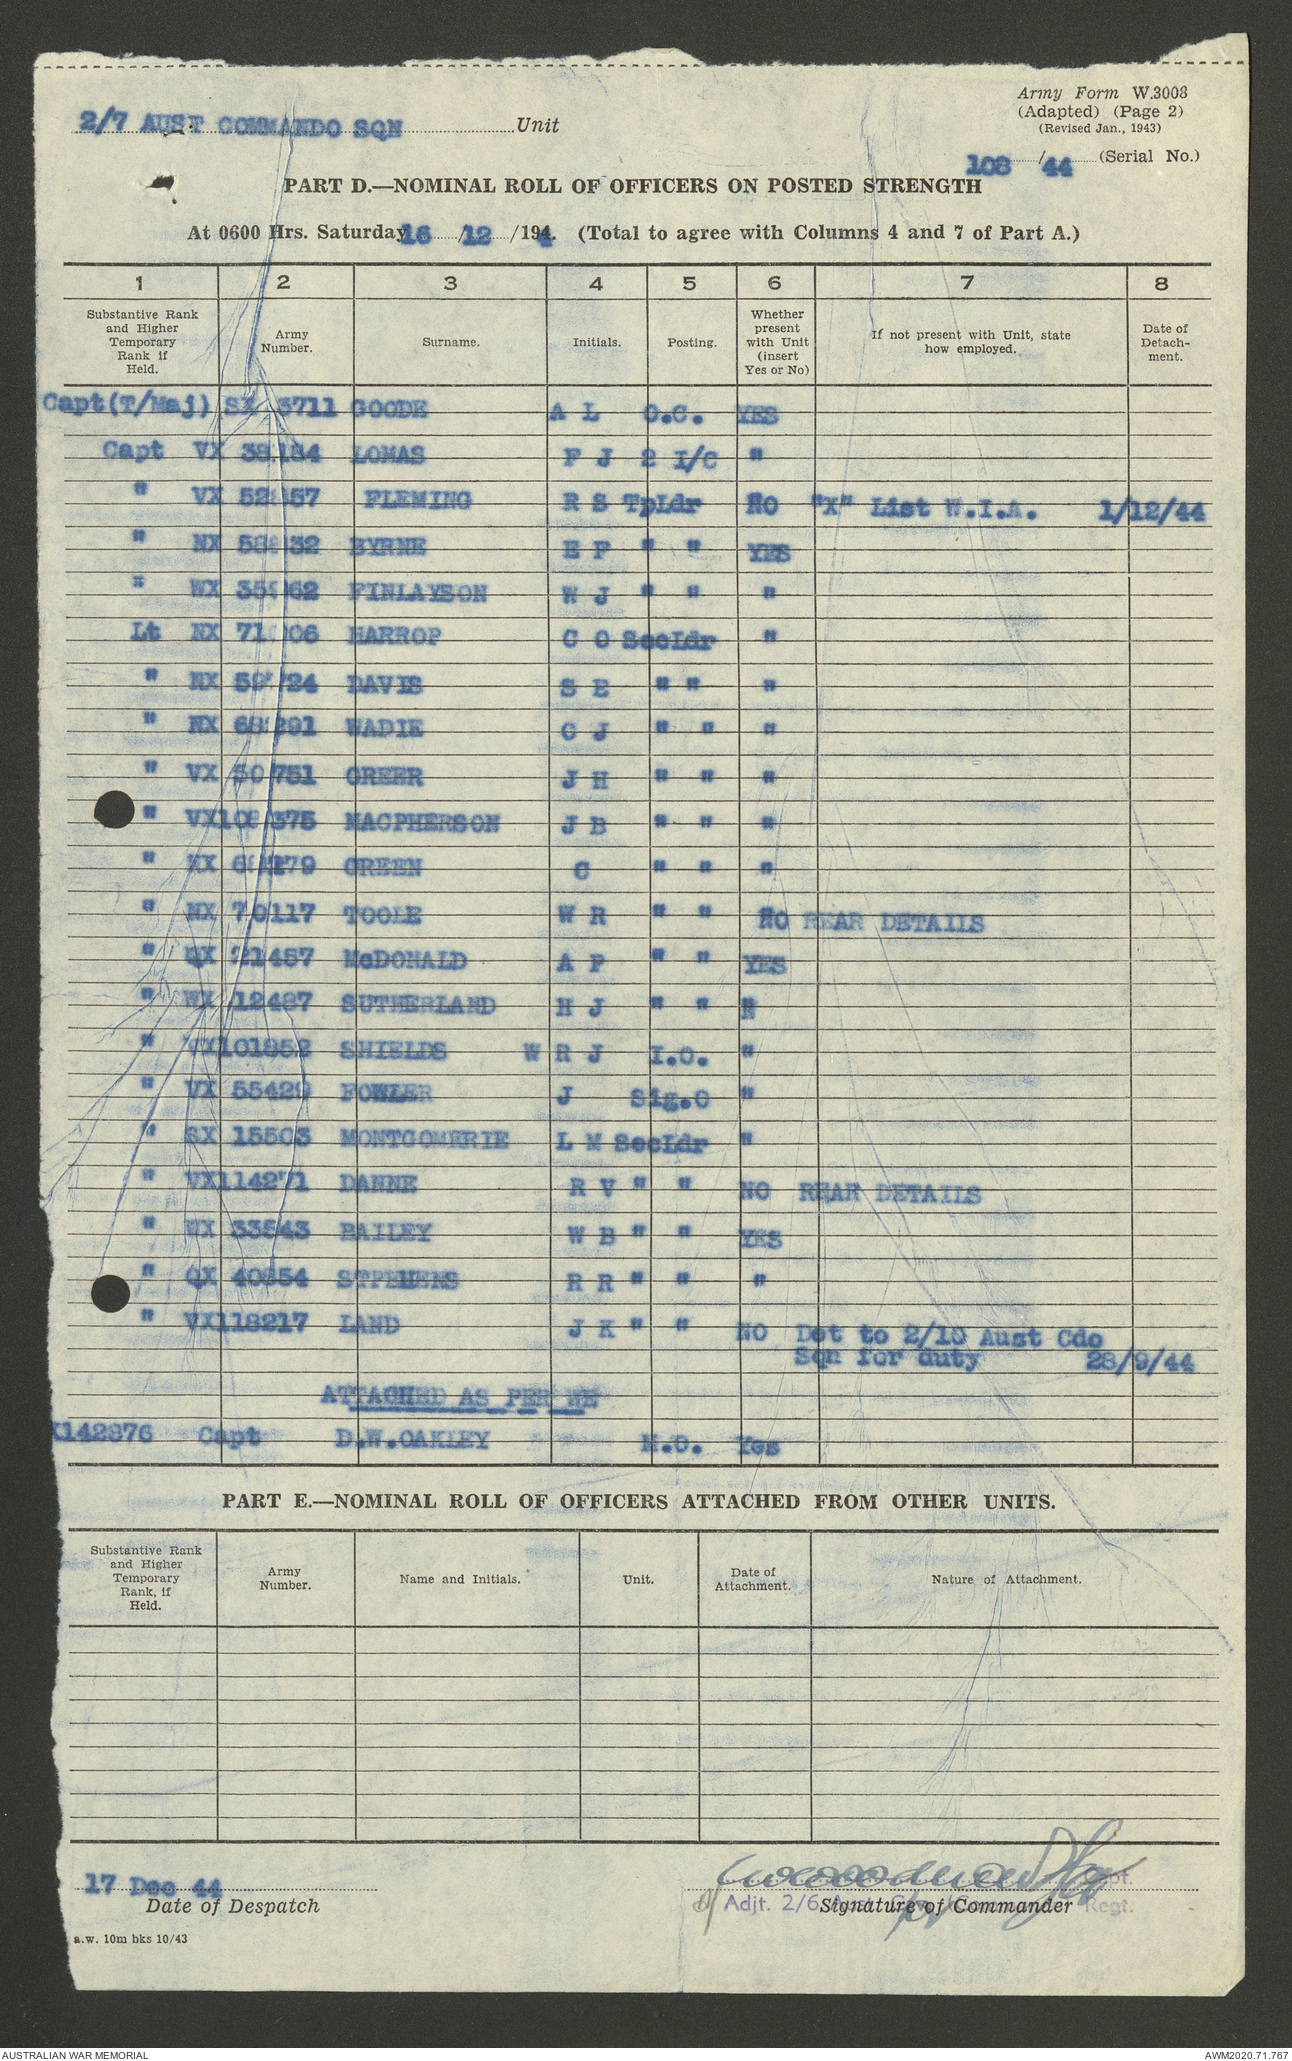 Army Form W.3008
(Adapted) (Page 2)
(Revised Jan., 1943)
2/7 AUST COMMANDO SQN Unit
108 / 44 (Serial No.)
PART D.—NOMINAL ROLL OF OFFICERS ON POSTED STRENGTH
At 0600 Hrs. Saturday 16 / 12 / 1944. (Total to agree with Columns 4 and 7 of Part A.)
1 2 3 4 5 6 7 8
Substantive Rank and Higher Temporary Rank if Held. Army Number. Surname. Initials. Posting. Whether present with Unit (insert Yes or No) If not present with Unit, state how employed. Date of Detach- ment.
Capt(T/Maj) SX 3711 GOODE A L O.C. YES
Capt VX 38184 LOMAS F J 2 I/C "
" VX FLEMING R S TpLdr NO "X" List W.I.A. 1/12/44
" NX BYRNE E F " " YES
" WX FINLAYSON W J " " "
Lt NX HARROP C O SecLdr "
" NX DAVIS S E " " "
" NX WADIE C J " " "
" VX 50751 GREER J H " " "
" VX MACPHERSON J B " " "
" NX GREEN C " " "
" NX 70117 TOOLE W R " " NO REAR DETAILS
" QX 21457 McDONALD A F " " YES
" WX 12487 SUTHERLAND H J " " "
" VX101852 SHIELDS W R J I.O. "
" VX 55429 FOWLER J Sig.O "
" SX 15503 MONTGOMERIE L M SecLdr "
" VX114271 DANNE R V " " NO REAR DETAILS
" WX 33543 BAILEY W B " " YES
" QX 40854 STPEHENS R R " " "
" VX118217 LAND J K " " NO Det to 2/10 Aust Cdo
Sqn for duty 28/9/44
ATTACHED AS PER WE
X142876 Capt D.W.OAKLEY M.O. Yes
PART E.—NOMINAL ROLL OF OFFICERS ATTACHED FROM OTHER UNITS.
Substantive Rank and Higher Temporary Rank, if Held. Army Number. Name and Initials. Unit. Date of Attachment. Nature of Attachment.
17 Dec 44
Capt.
Date of Despatch
Adjt. 2/6 Aust. Regt.
Signature of Commander
a.w. 10m bks 10/43
AUSTRALIAN WAR MEMORIAL AWM2020.71.767